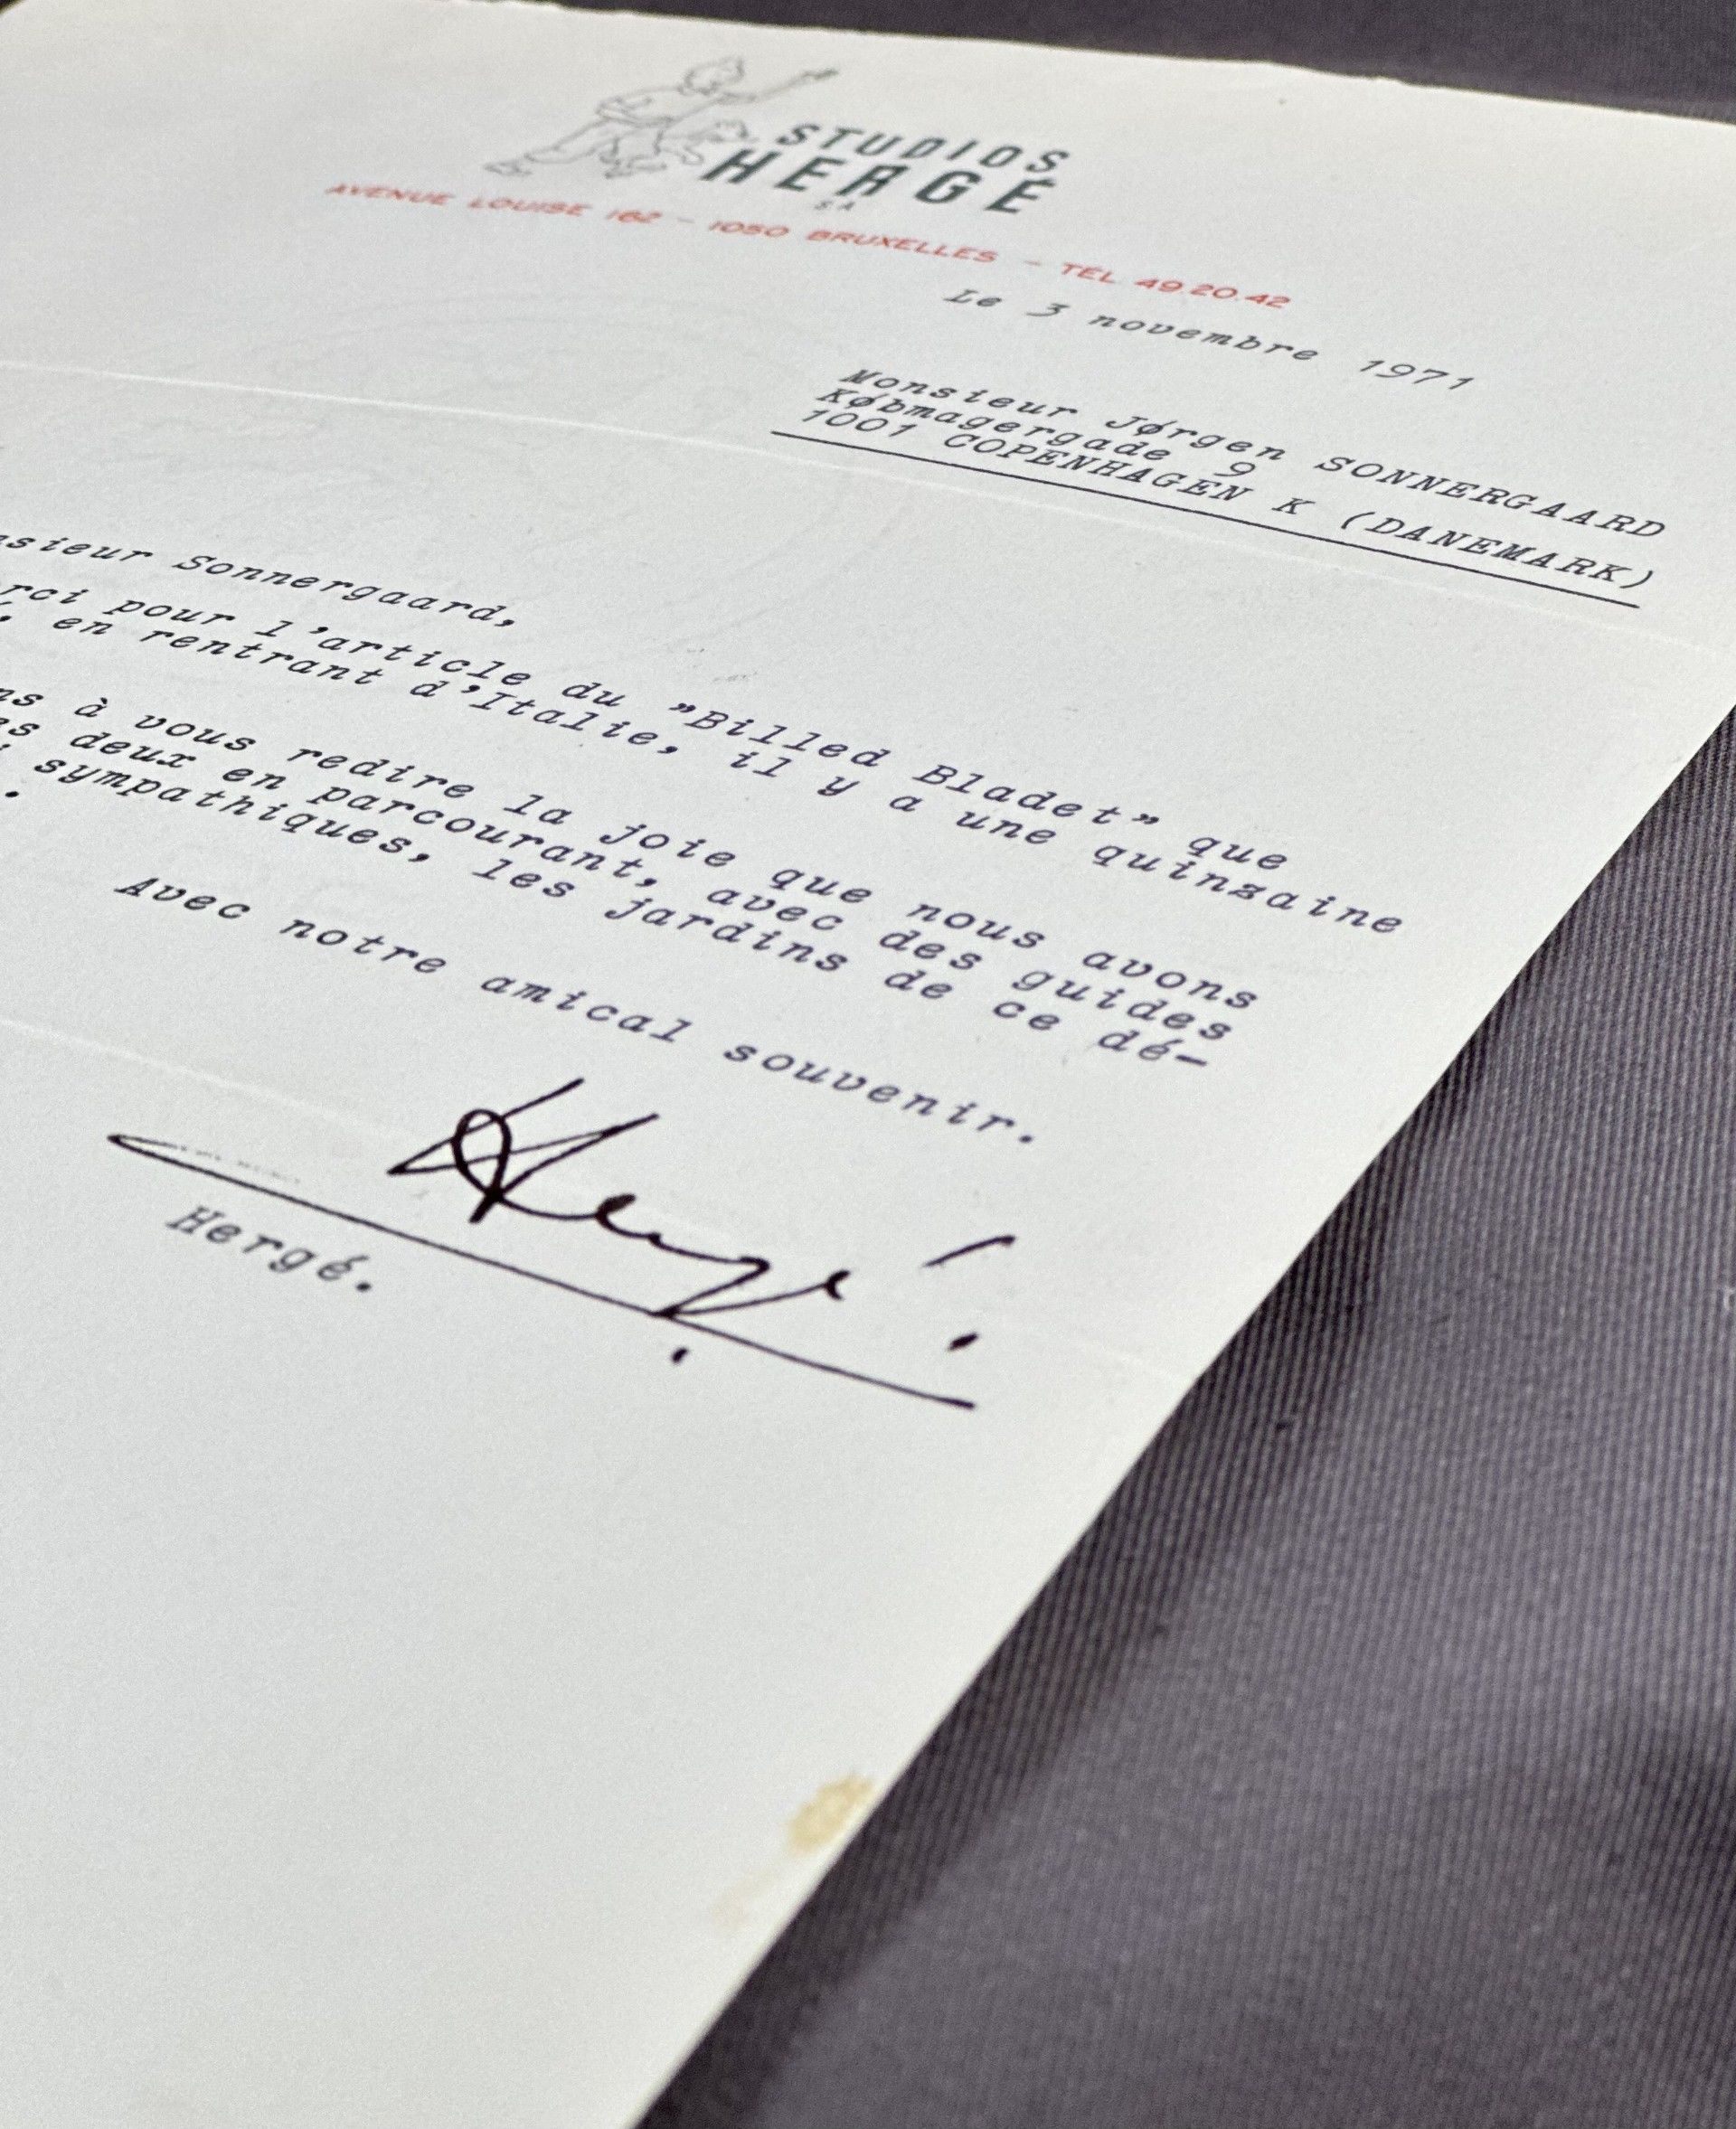 STUDIOS
HERGÉ
S A
AVENUE LOUISE 162 - 1050 BRUXELLES - TÉL. 49.20.42
Le 3 novembre 1971
Monsieur Jørgen SONNERGAARD
Købmagergade 9
1001 COPENHAGEN K (DANEMARK)
sieur Sonnergaard,
rci pour l'article du "Billed Bladet" que
, en rentrant d'Italie, il y a une quinzaine
ns à vous redire la joie que nous avons
s deux en parcourant, avec des guides
sympathiques, les jardins de ce dé-
.
Avec notre amical souvenir.
Hergé
Hergé.